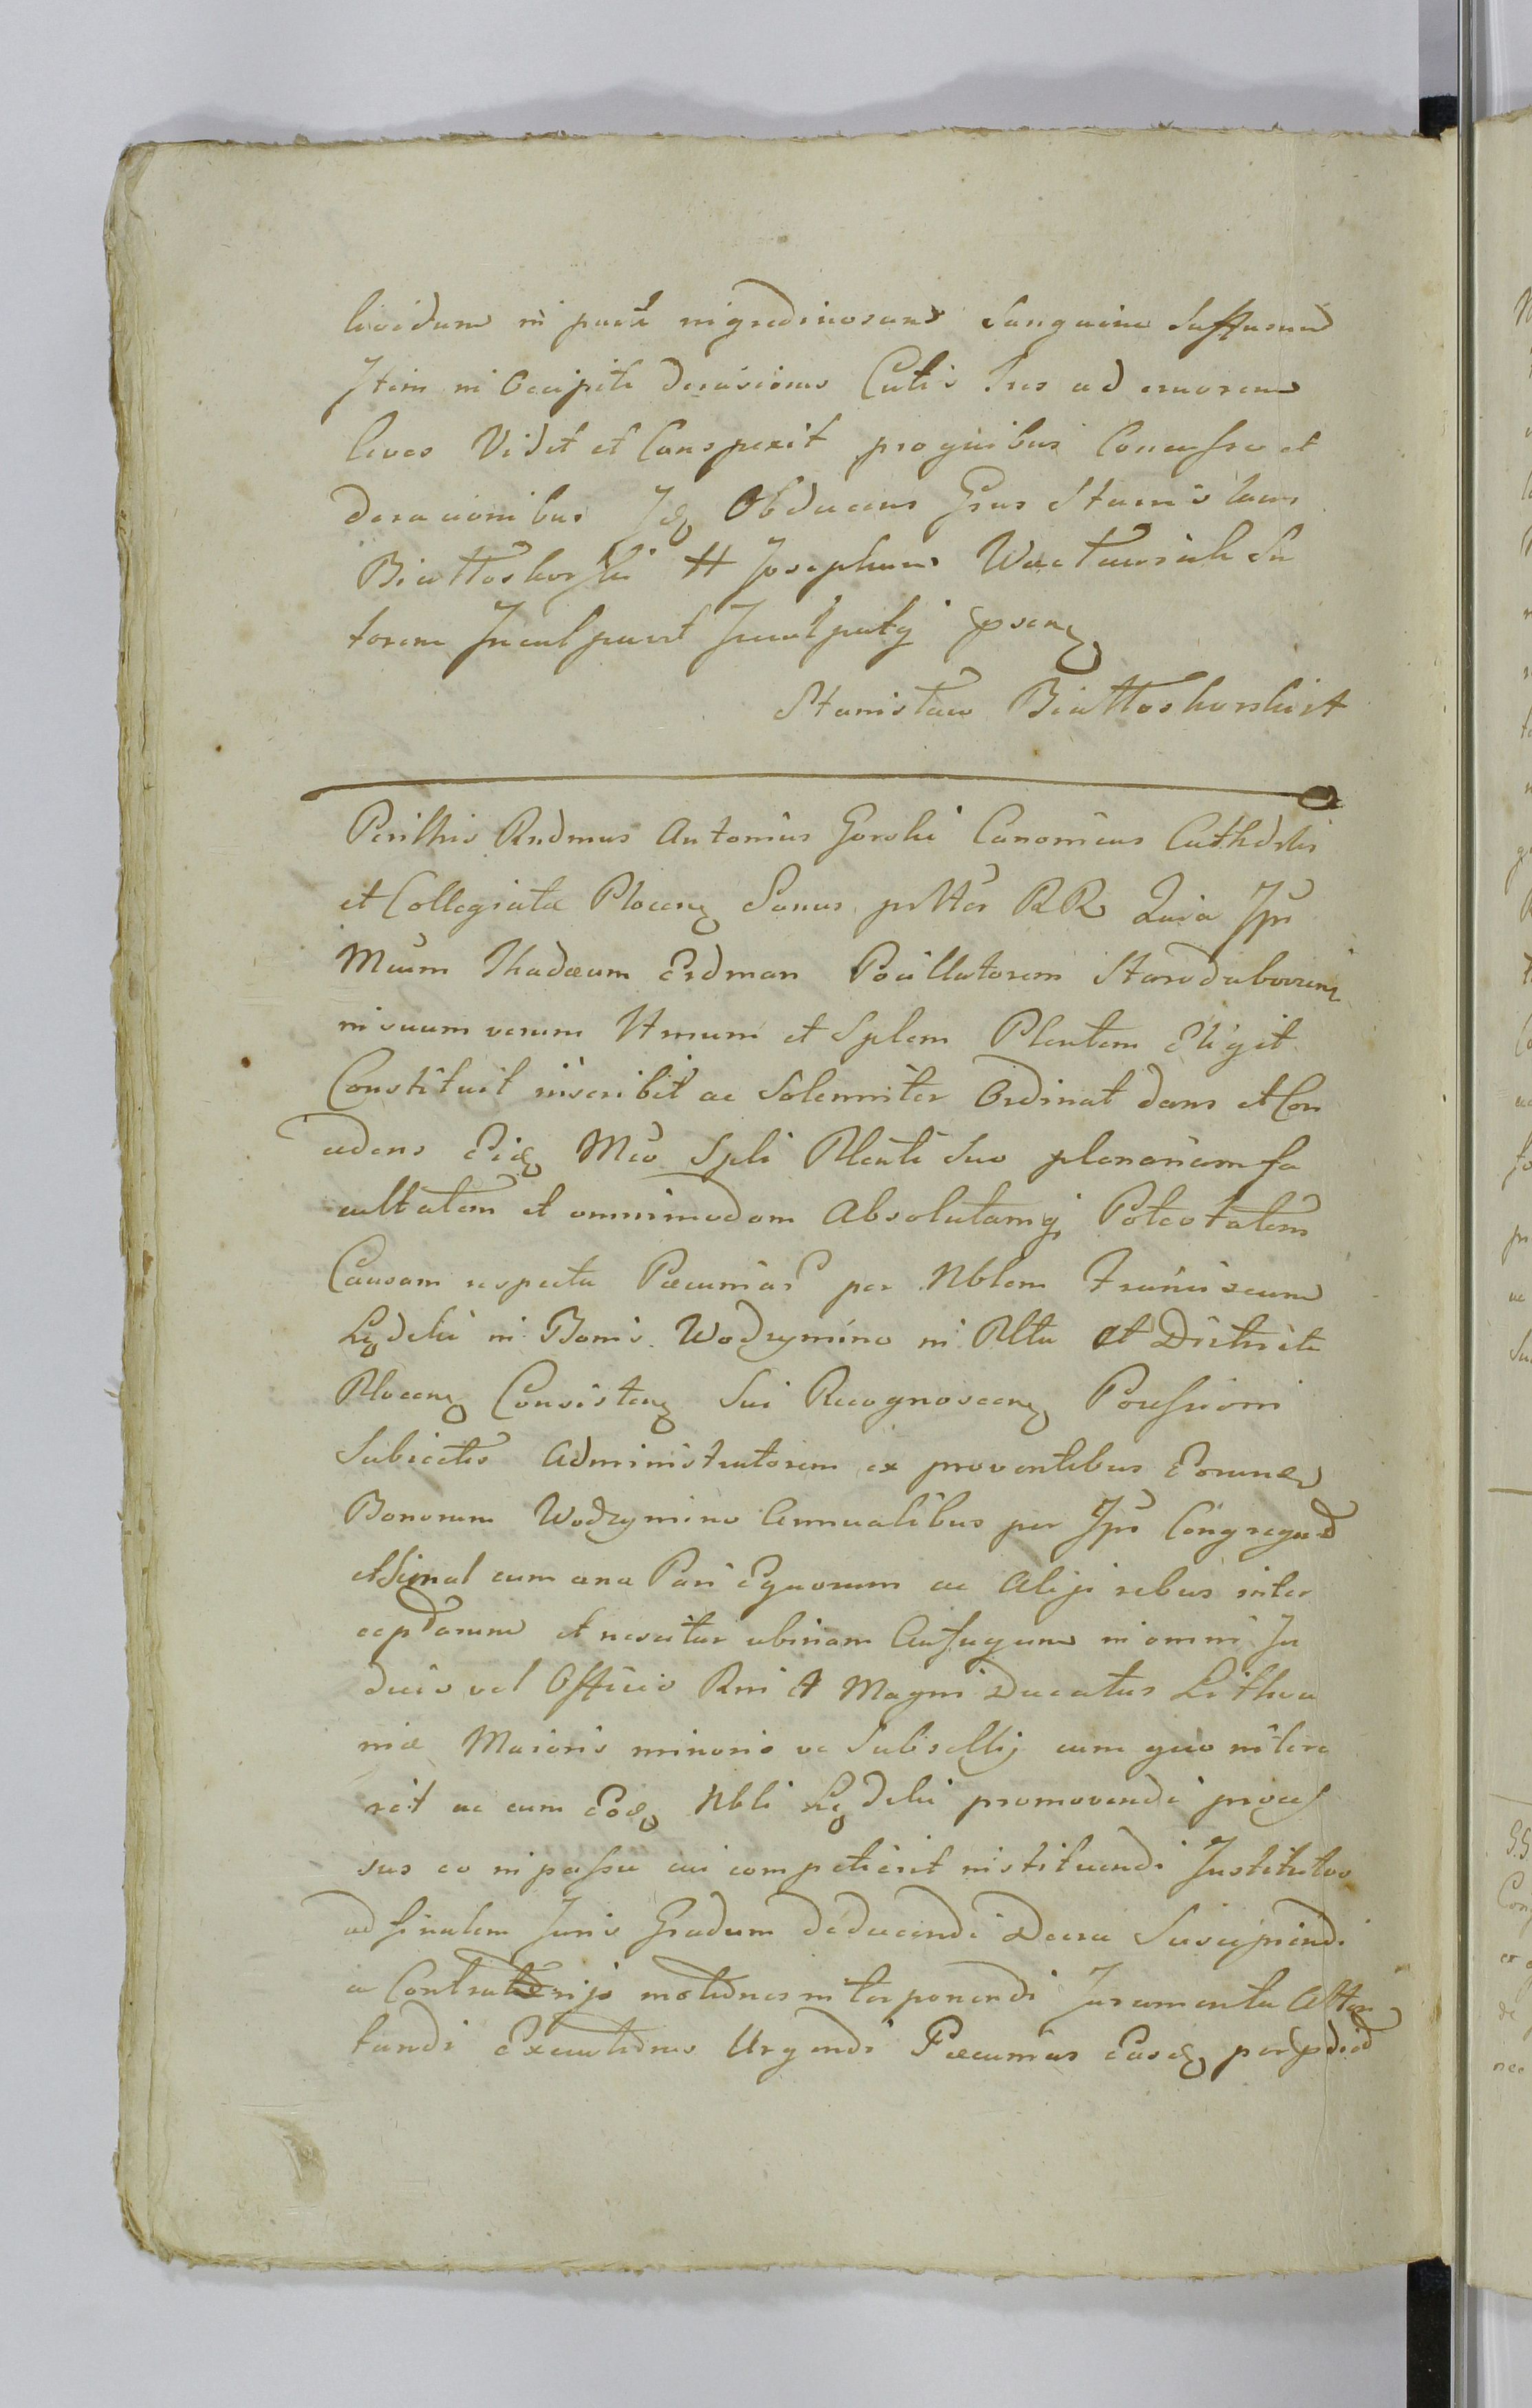 lividum in parte nigredinosam Sanguine Suffusum
Item in Occipite derasiones Cutis tres ad cruorem
leves Vidit et Conspexit pro quibus Concusso et
derasionibus Idq Obducens Grus Stanislaus
Białłoskorski H Josephum Wactawiak Su
torem Inculpavit Inculpatq psenq
Stanisław Białłoskorski A
Perillris Rndmus Antonius Gorski Canonicus Cathdrlis
et Collegiatæ Plocenq Sanus prtter RR Quia Ipse
Mcum Thadæum Erdman Pocillatorem Starodubovienq
in suum verum Ittmum et Splem Plentem Eligit
Constituit inscribit ac Solenniter Ordinat dans et Con
cedens Eidq Mco Spli Plenti suo plenariam fa
cultatem et omnimodam Absolutamq Potestatem
Causam respectu Pæcuniar per Nblem Franciscum
in Bonis Wodzymino in Plttu et Districtu
Plocenq Consistenq Sui Recognoscenq Possessioni
Subiectis Administratorem ex proventibus Eorund
Bonorum Wodzymino Annualibus per Ipse Congregatd
et Simul cum una Pari Equorum ac Alijs rebus inter
ceptarum et nescitur ubinam Aufugum in omni Ju
dicio vel Officio Rni et Magni Ducatus Lithua
niæ Maioris minoris ve Subsellij cum quo intere
rit ac cum Eodq Nbli promovendi proces
sus eo in passu cui competierit instituendi Institutos
ad finalem Juris Gradum deducendi Decra Suscipiendi
a Contrarijs motiones interponendi Juramenta Atten
tandi Executiones Urgendi Pæcunias Easdq per pdictd